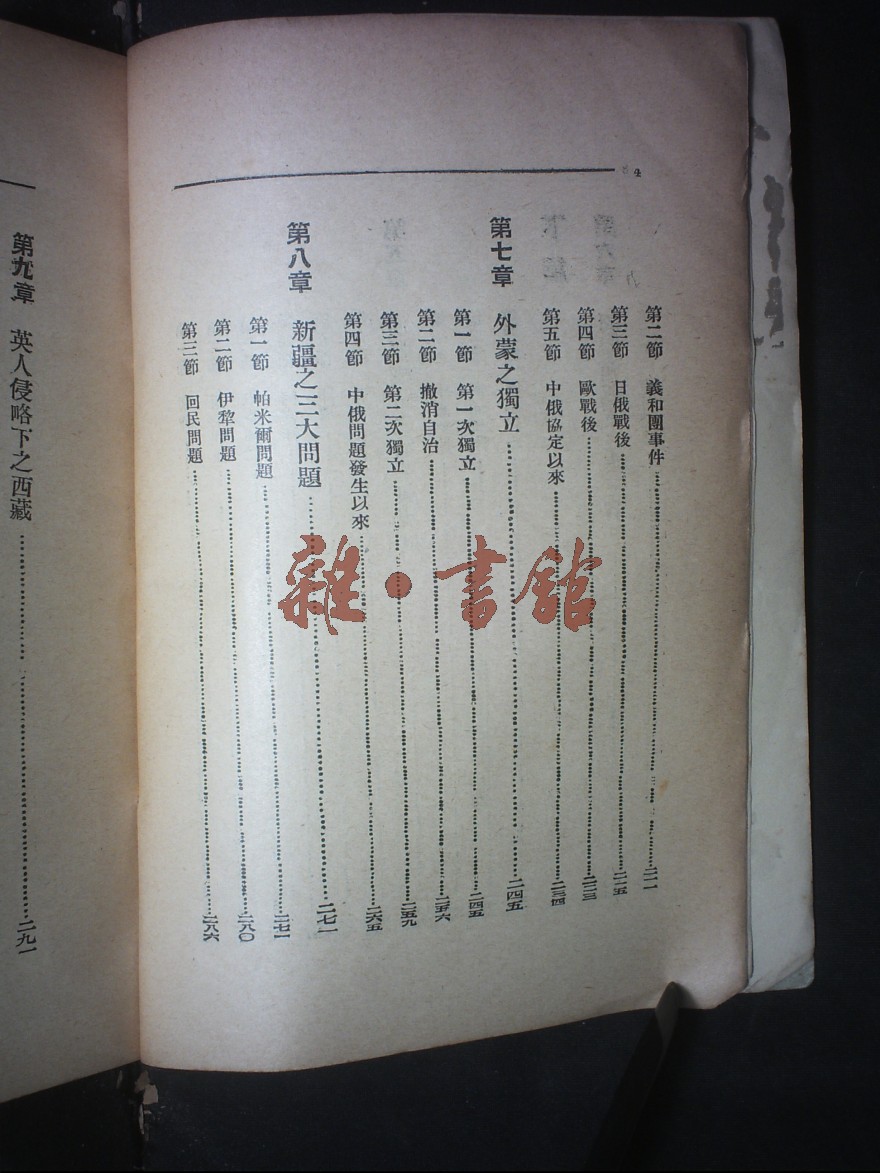 4
第二節 義和團事件…………二一一
第三節 日俄戰後…………二一五
第四節 歐戰後…………二二三
第五節 中俄協定以來…………二三四
第七章 外蒙之獨立…………二四五
第一節 第一次獨立…………二四五
第二節 撤消自治…………二五六
第三節 第二次獨立…………二五九
第四節 中俄問題發生以來…………二六五
第八章 新疆之三大問題…………二七一
第一節 帕米爾問題…………二七一
第二節 伊犂問題…………二八〇
第三節 回民問題…………二八六
第九章 英人侵略下之西藏…………二九一
雜·書館